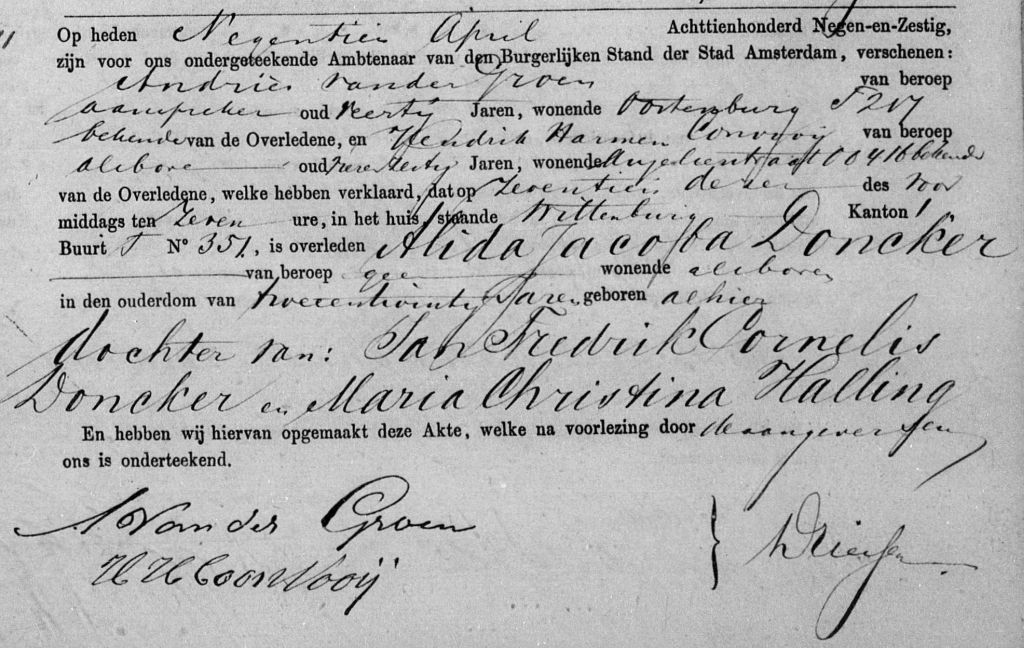 Op heden Negentien April Achttienhonderd Negen-en-Zestig,
zijn voor ons ondergeteekende Ambtenaar van den Burgerlijken Stand der Stad Amsterdam, verschenen:
Andries van der Groen van beroep
aanspreker oud Jaren, wonende Oostenburg F 217
bekende van de Overledene, en Hendrik Harmen Convooij van beroep
alsboven oud Jaren, wonende Anjelierstraat OO 416 bekende
van de Overledene, welke hebben verklaard, dat op Zeventien dezer des voor
middags ten Zeven ure, in het huis staande Wittenburg Kanton 1
Buurt F No 351, is overleden Alida Jacoba Doncker
van beroep geen wonende alsboven
in den ouderdom van tweeentwintig Jaren, geboren alhier
dochter van: Jan Fredrik Cornelis
Doncker en Maria Christina Halling
En hebben wij hiervan opgemaakt deze Akte, welke na voorlezing door de aangevers en
ons is onderteekend.
A van der Groen
H H Coonvooij